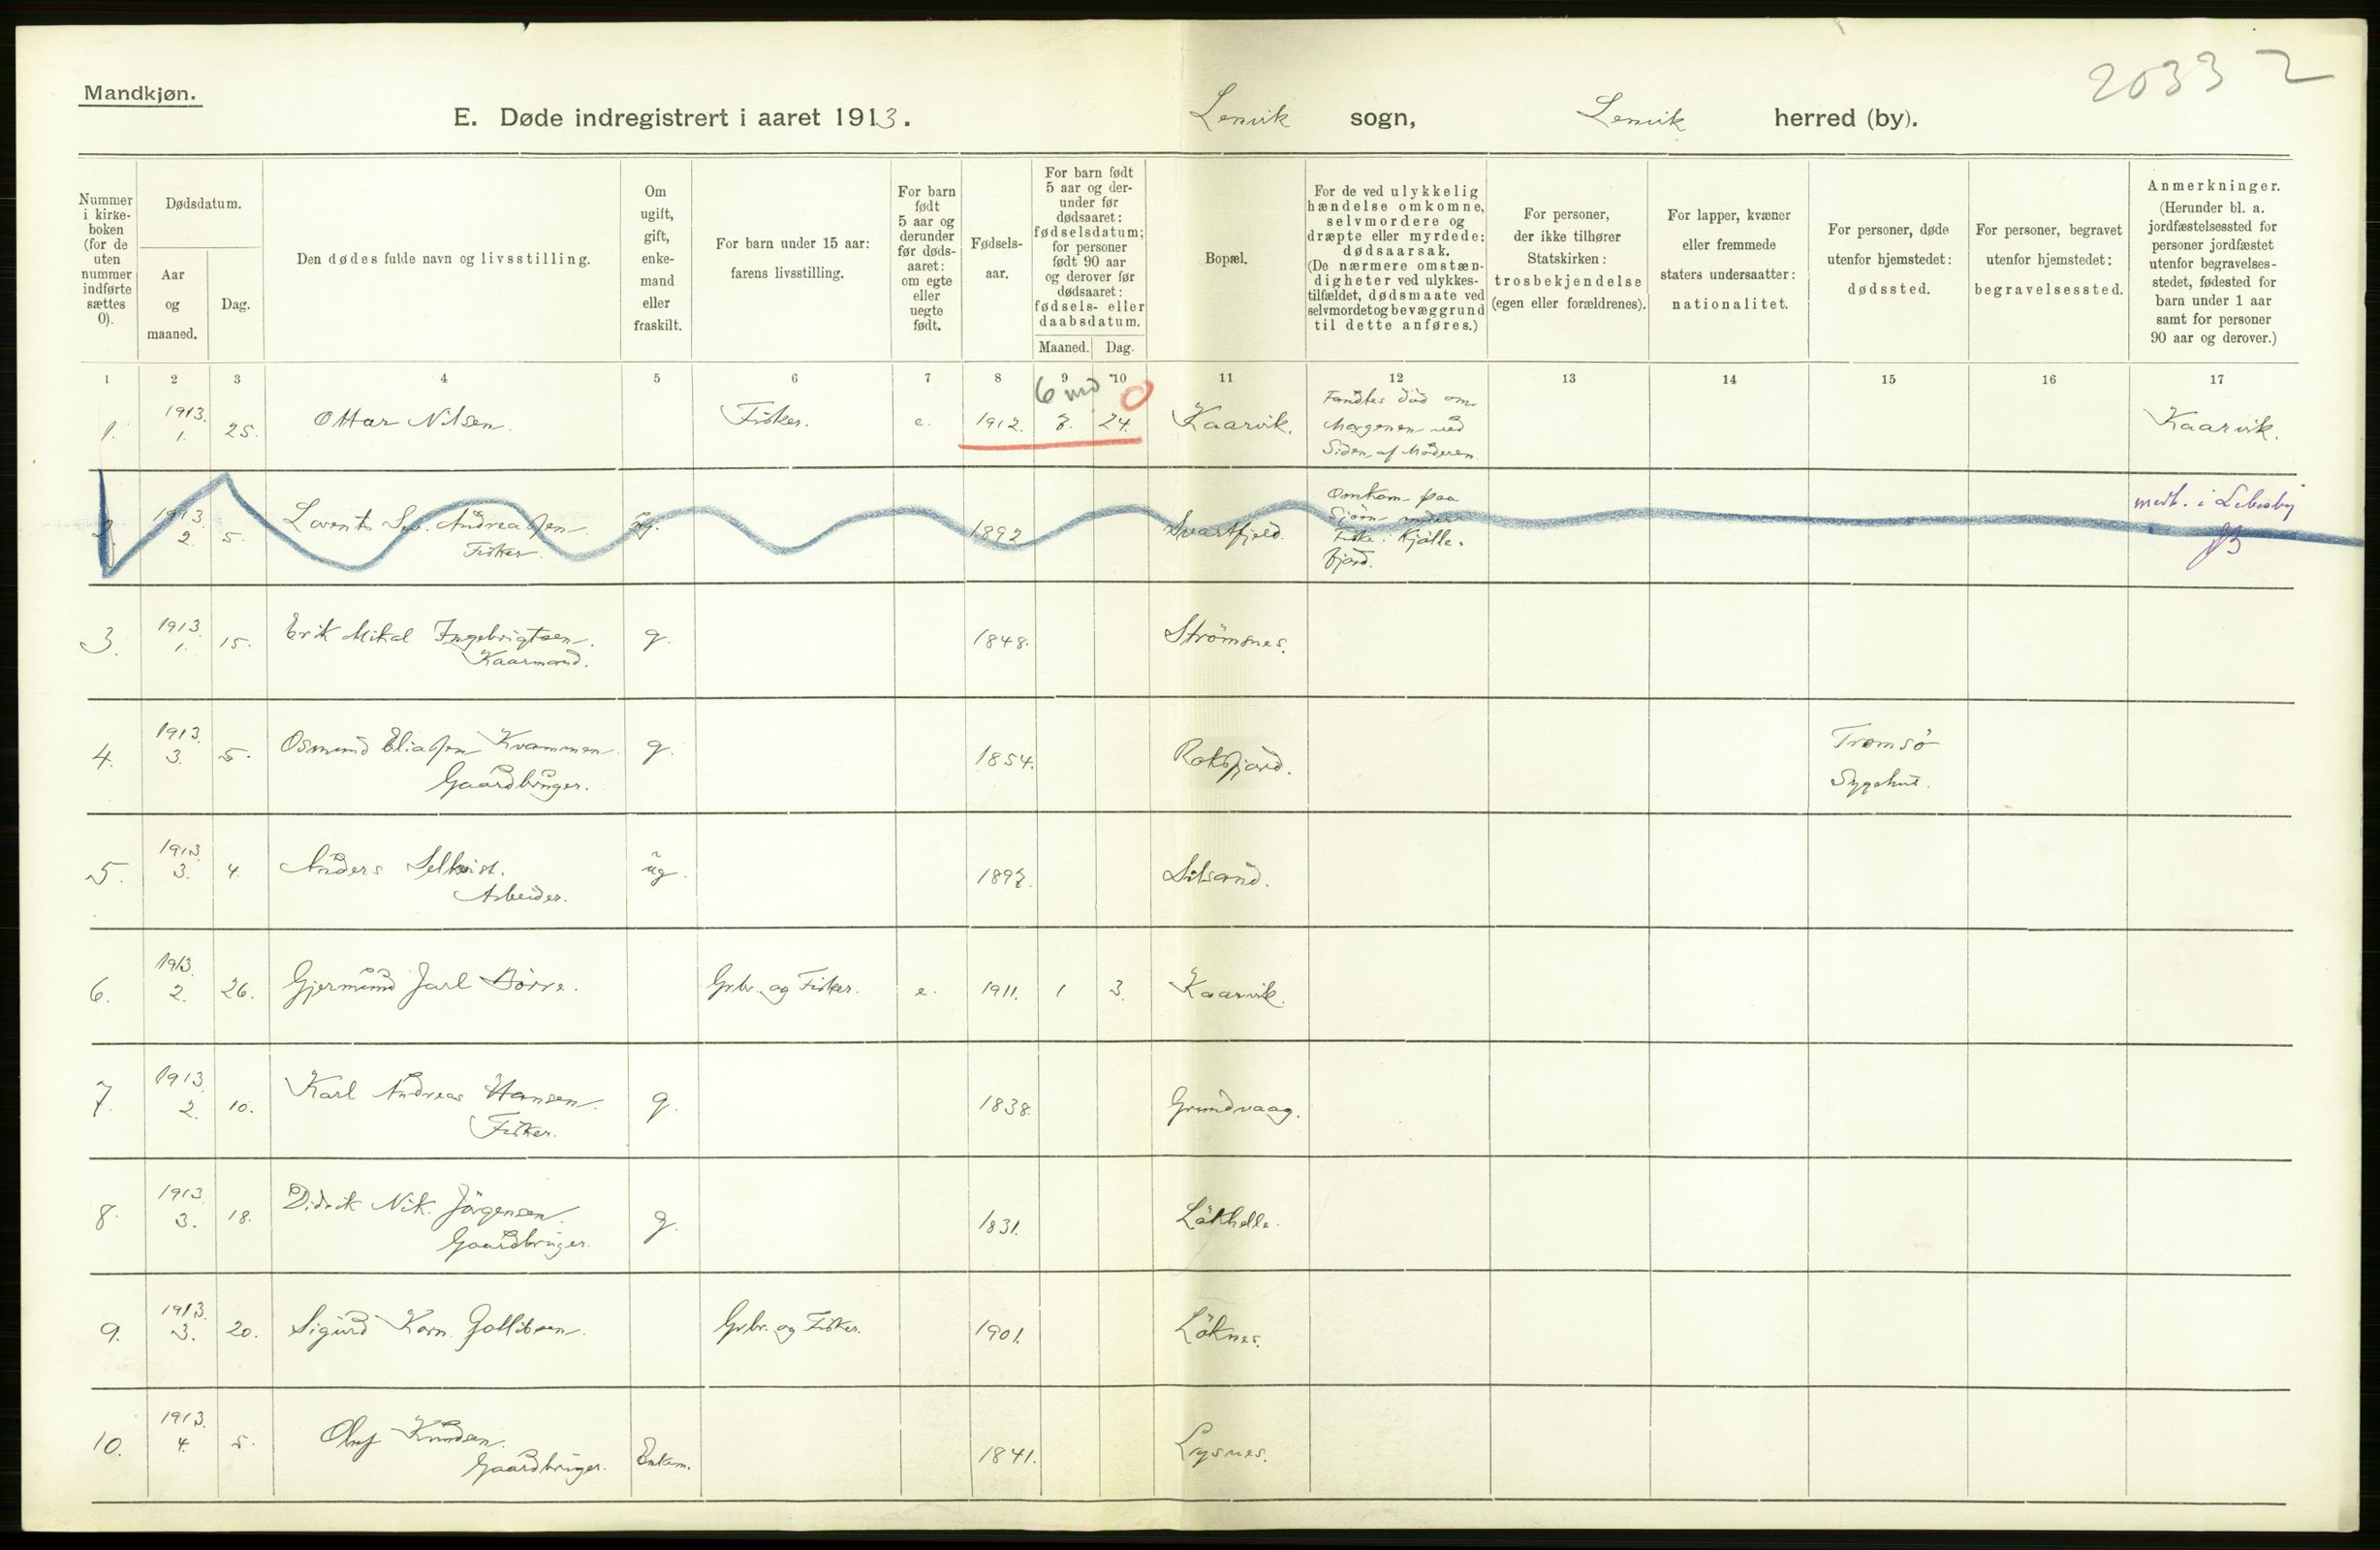 Mandkjøn.
2033 2
E. Døde indregistrert i aaret 1913. Lenvik sogn, Lenvik herred (by).
Nummer i kirke-boken (for de uten nummer indførte sættes 0).
Dødsdatum.
Aar og maaned.
Dag.
Den dødes fulde navn og livsstilling.
Om ugift, gift, enke-mand eller fraskilt.
For barn under 15 aar: farens livsstilling.
For barn født 5 aar og derunder før døds-aaret: om egte eller uegte født.
Fødsels-aar.
For barn født 5 aar og der-under før dødsaaret: fødselsdatum; for personer født 90 aar og derover før dødsaaret: fødsels- eller daabsdatum.
Maaned. Dag.
Bopæl.
For de ved ulykkelig hændelse omkomne, selvmordere og dræpte eller myrdede: dødsaarsak. (De nærmere omstæn-digheter ved ulykkes-tilfældet, dødsmaate ved selvmordet og bevæggrund til dette anføres.)
For personer, der ikke tilhører Statskirken: trosbekjendelse (egen eller forældrenes).
For lapper, kvæner eller fremmede staters undersaatter: nationalitet.
For personer, døde utenfor hjemstedet: dødssted.
For personer, begravet utenfor hjemstedet: begravelsessted.
Anmerkninger. (Herunder bl. a. jordfæstelsessted for personer jordfæstet utenfor begravelses-stedet, fødested for barn under 1 aar samt for personer 90 aar og derover.)
1 2 3 4 5 6 7 8 9 10 11 12 13 14 15 16 17
6 md 0
1. 1913. 1. 25. Ottar Nilsen. Fisker. e. 1912. 7. 24. Kaarvik. Fandtes död om Morgenen ved Siden af Moderen. Kaarvik.
2. 1913. 2. 5. Lorents Andreassen. Fisker. ug. 1892 Svartfjeld. Omkom paa Sjöen under Fiske i Kjölle-fjord. medt. i Lebesby
3. 1913. 1. 15. Erik Mikal Ingebrigtsen. Kaarmand. g. 1848. Strömsnes.
4. 1913. 3. 5. Osmund Eliassen Kvammen Gaardbruger. g. 1854. Roksfjord. Tromsö Sygehus.
5. 1913. 3. 4. Anders Selkvist. Arbeider. ug. 1897. Silsand.
6. 1913. 2. 26. Gjermund Jarl Börre. Grbr. og Fisker. e. 1911. 1 3. Kaarvik.
7. 1913. 2. 10. Karl Andreas Hansen. Fisker. g. 1838. Grundvaag.
8. 1913. 3. 18. Didrik Nik. Jörgensen. Gaardbruger. g. 1831. Läkhelle.
9. 1913. 3. 20. Sigurd Korn. Gotlibsen. Grbr. og Fisker. 1901. Löknes.
10. 1913. 4. 5. Oluf Knudsen. Gaardbruger. Enkem. 1841. Lysnes.